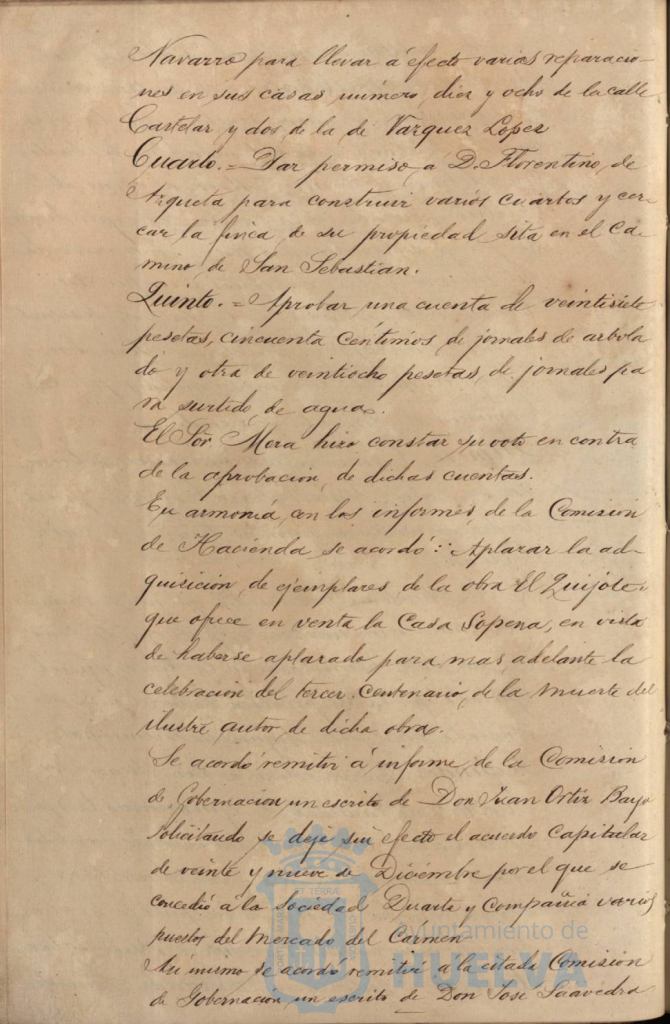 Navarro para llevar á efecto varias reparacio-
nes en sus casas número, diez y ocho de la calle
Castelar y dos de la de Vazquez Lopez
Cuarto.= Dar permiso, á D. Florentino, de
Azqueta para construir varios cuartos y cer-
car la finca de su propiedad sita en el Ca-
mino, de San Sebastian.
Quinto.= Aprobar una cuenta de veintisiete
pesetas, cincuenta céntimos de jornales de arbola
do y otra de veintiocho pesetas, de jornales pa
ra surtido, de aguas.
El Sór Mora hizo constar su voto en contra
de la aprobacion, de dichas cuentas.
En armonía, con los informes, de la Comision
de Hacienda se acordó: Aplazar la ad-
quisicion, de ejemplares de la obra El Quijote
que ofrece en venta la Casa Sopena, en vista
de haberse aplazado para mas adelante la
celebracion del tercer Centenario, de la muerte del
ilustre autor, de dicha obra.
Se acordó remitir á informe, de la Comision
de Gobernacion un escrito de Don Juan Ortiz Bayo
solicitando se deje sin efecto el acuerdo Capitular
de veinte y nueve de Diciembre por el que se
concedió á la Sociedad Duarte y Compañia varios
puestos del Mercado del Carmen
Asi mismo se acordó remitir a la citada Comision
de Gobernacion un escrito de Don José Saavedra
ET TERRÆ
Ayuntamiento de
HUELVA